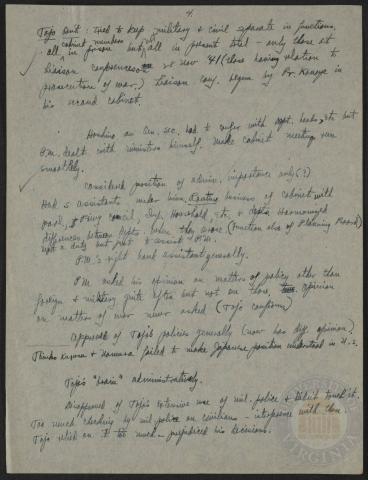 4.
Tojo Govt: tried to keep military & civil separate in functions,
cabinet members
all in prison but all in present trial - only those at
liaison conferences or saw 41 (those having relation to
prosecution of war.) Liaison conf. begun by Pr. Konoye in
his second cabinet.
Hoshino as Gen. Sec. had to confer with dept. heads, etc. but
P.M. dealt with ministers himself. Make cabinet meetings run
smoothly.
Considered position of admin. importance only (?)
Had 3 assistants under him. Routine business of cabinet with
parl., Privy Council, Imp. Household, etc. & Harmonized
differences between depts. when they arose (function also of Planning Board)
not a duty but just to assist P.M.
P.M.'s right hand assistant generally.
P.M. asked his opinion on matters of policy other than
foreign & military quite often but not on those, opinion
on matter of war never asked (Tojo confirm)
Approved of Tojo's policies generally (now has diff. opinion)
Thinks Kurusu & Nomura failed to make Japanese position understood in U.S.
Tojo's "brain" administratively.
Disapproved of Tojo's extensive use of mil. police & didn't touch it.
Too much checking by mil police on civilians - interference with them.
Tojo relied on it too much - prejudiced his decisions.